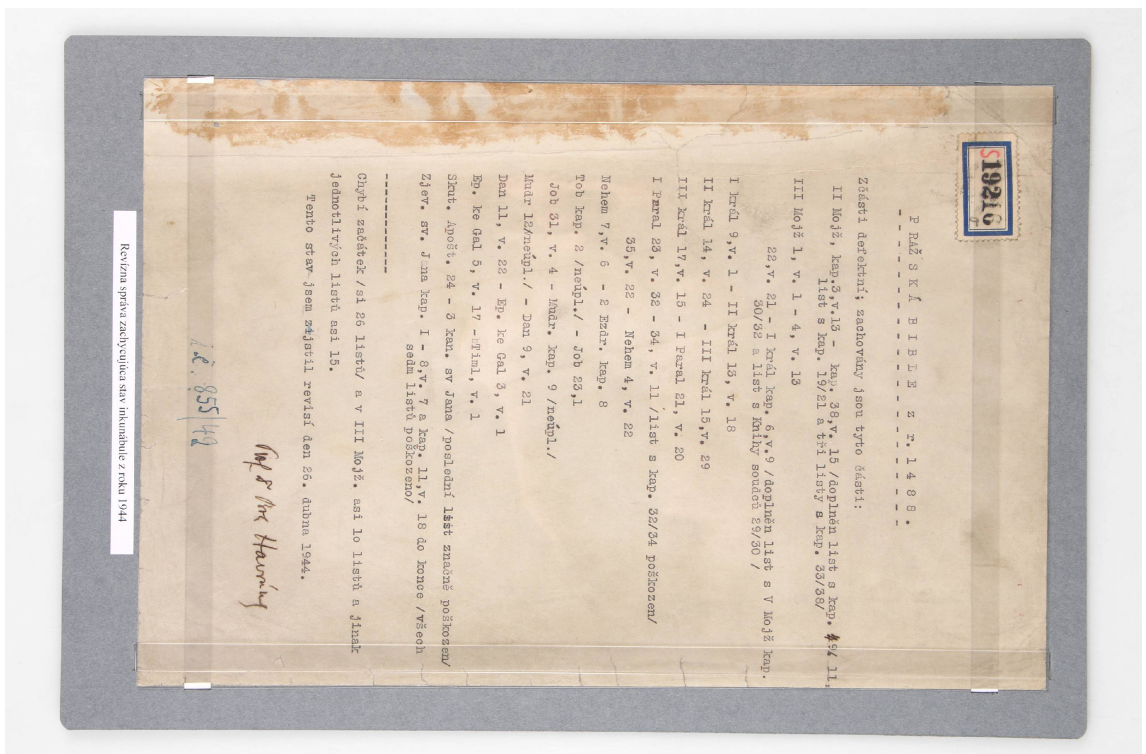 S 19216
PRAŽSKÁ BIBLE z r. 1488.
Zčásti defektní; zachovány jsou tyto části:
II Mojž, kap.3,v.13 - kap. 38,v. 15 /doplněn list s kap. 9/ 11,
list s kap. 19/21 a tři listy s kap. 33/38/
III Mojž 1, v. 1 - 4, v. 13
22,v. 21 - I král kap. 6,v.9 /doplněn list s V Mojž kap.
30/32 a list s Knihy soudců 29/30 /
I král 9,v. 1 - II král 13, v. 18
II král 14, v. 24 - III král 15,v. 29
III král 17,v. 15 - I Paral 21, v. 20
I Paral 23, v. 32 - 34, v. 11 /list s kap. 32/34 poškozen/
35,v. 22 - Nehem 4, v. 22
Nehem 7,v. 6 - 2 Ezdr. kap. 8
Tob kap. 2 /neúpl./ - Job 23,1
Job 31, v. 4 - Mudr. kap. 9 /neúpl./
Mudr 12/neúpl./ - Dan 9, v. 21
Dan 11, v. 22 - Ep. ke Gal 3, v. 1
Ep. ke Gal 5, v. 17 - Tim1, v. 1
Skut. Apošt. 24 - 3 kan. sv Jana /poslední list značně poškozen/
Zjev. sv. Jana kap. I - 8,v. 7 a kap. 11,v. 18 do konce /všech
sedm listů poškozeno/
Chybí začátek /si 26 listů/ a v III Mojž. asi lo listů a jinak
jednotlivých listů asi 15.
Tento stav jsem zjistil revisí den 26. dubna 1944.
i.č. 855/42
Revízna správa zachycujúca stav inkunábule z roku 1944